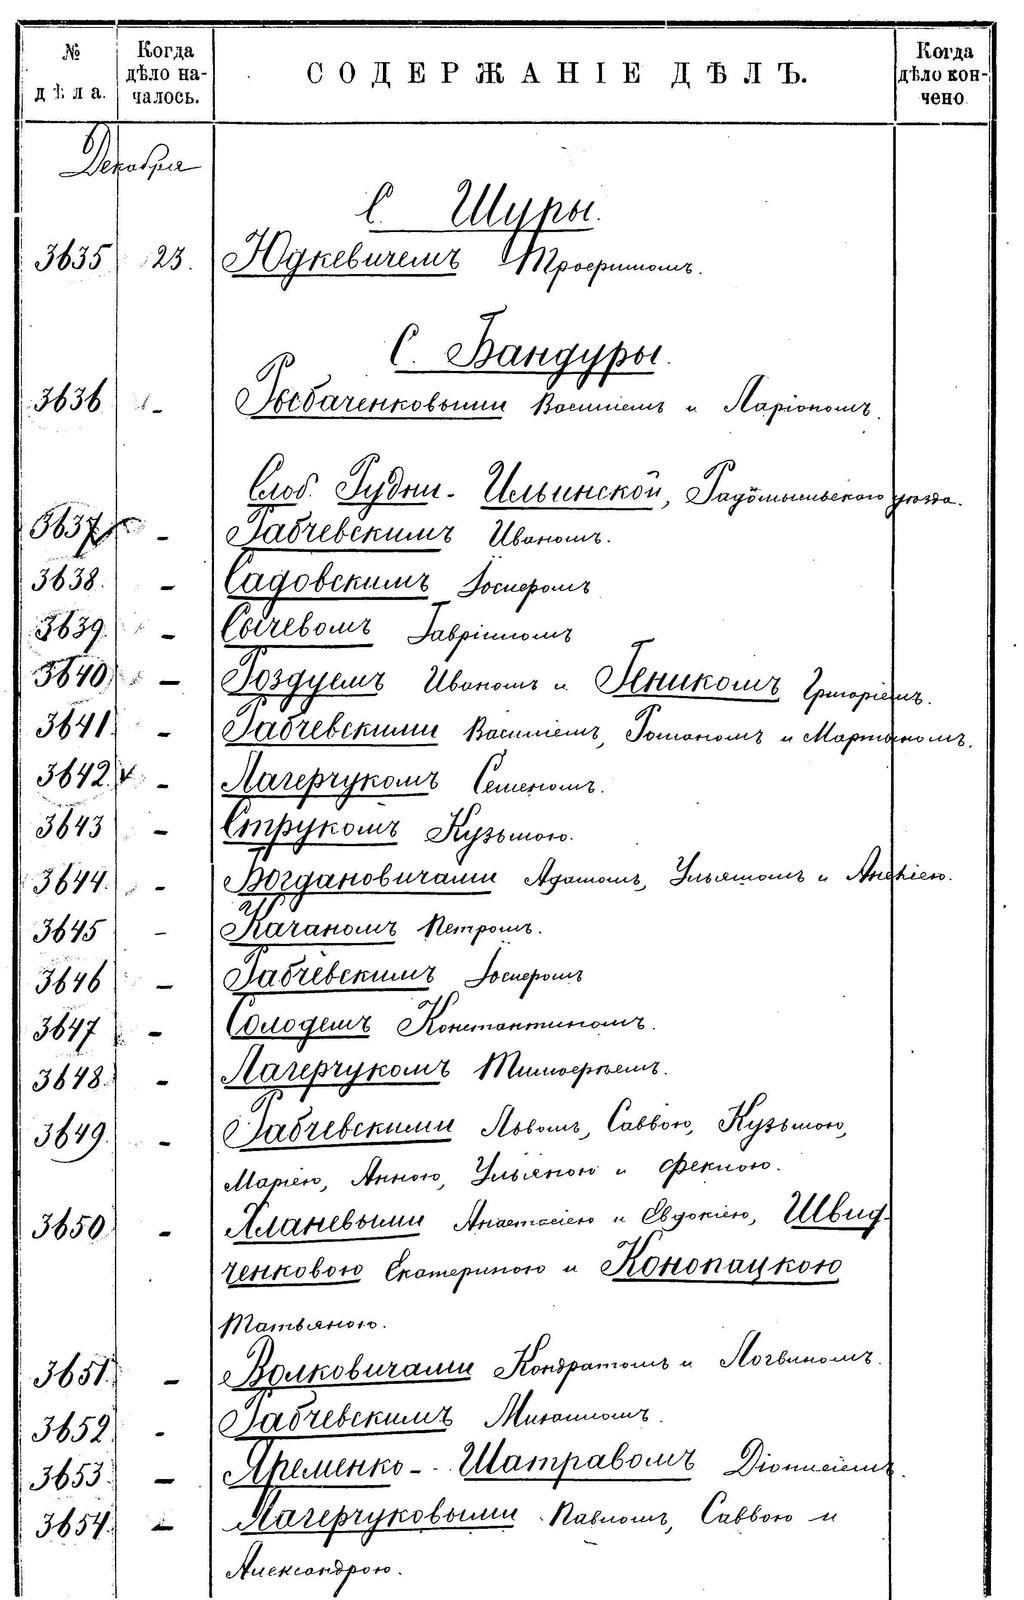 № дѣла. Когда дѣло на-чалось. СОДЕРЖАНІЕ ДѢЛЪ. Когда дѣло кон-чено
Декабря
С. Шуры.
3635 23. Юдкевичемъ Трофимомъ.
С. Бандуры.
3636 - Рыбаченковыми Василіемъ и Ларіономъ.
Слоб. Рудни-Ильинской, Радомысльского уѣзда.
3637 - Рабчевскимъ Иваномъ.
3638. - Садовскимъ Іосифомъ
3639. - Сычевомъ Гавріиломъ
3640 - Роздуемъ Иваномъ и Геникомъ Григоріемъ.
3641 - Рабчевскими Василіемъ, Романомъ и Мартыномъ.
3642. - Лагерчукомъ Семеномъ.
3643 - Струкомъ Кузьмою.
3644. - Богдановичами Адамомъ, Ульяномъ и Анною.
3645 - Качаномъ Петромъ.
3646 - Рабчевскимъ Іосифомъ
3647 - Солодемъ Константиномъ.
3648. - Лагерчукомъ Тимофѣемъ.
3649. - Рабчевскими Львомъ, Саввою, Кузьмою,
Маріею, Анною, Ульяною и Феклою.
3650 - Хланевыми Анастасіею и Евдокіею, Швид-
ченковою Екатериною и Конопацкою
Татьяною.
3651. - Волковичами Кондратомъ и Логвиномъ.
3652 - Рабчевскимъ Михаиломъ.
3653. - Яременко-Шатравомъ Діонисіемъ.
3654. - Лагерчуковыми Павломъ, Саввою и
Александрою.